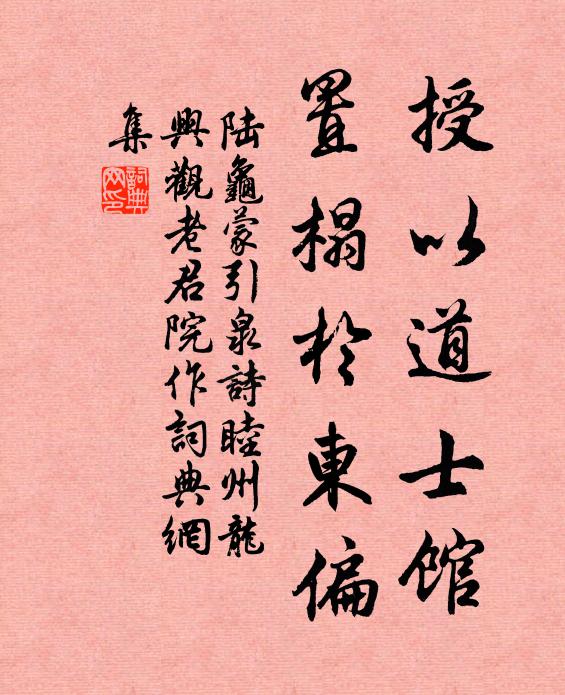 授以道士馆
置榻於東偏
陆龜蒙引泉詩睦州龍
興觀老君院作詞典網
集
詞典
网印